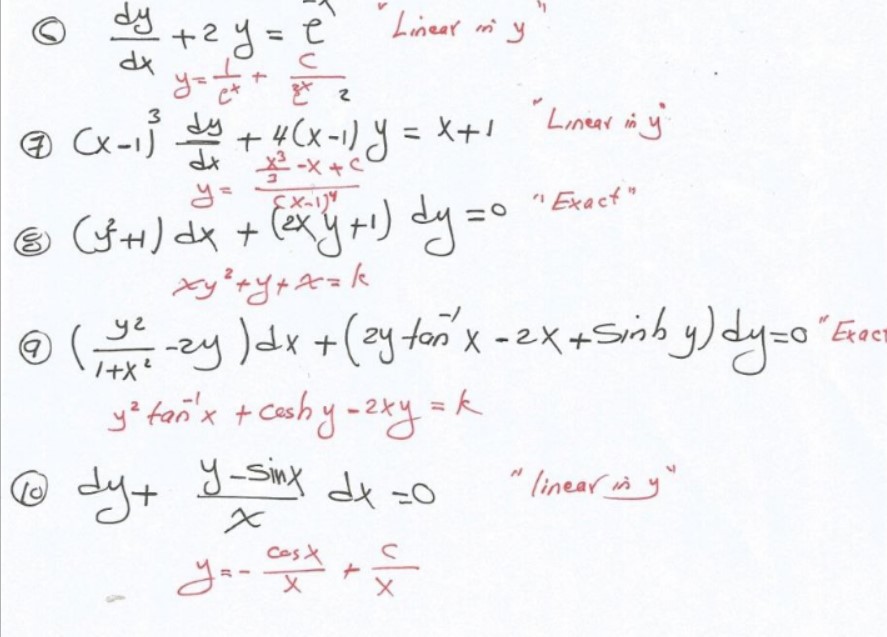 ⑥ dy/dx + 2y = e^-x "Linear in y"
y = 1/e^x + C/e^2x
⑦ (x-1)^3 dy/dx + 4(x-1)^2 y = x+1 "Linear in y"
y = (x^3/3 - x + C)/(x-1)^4
⑧ (y^2+1) dx + (2xy+1) dy = 0 "Exact"
xy^2 + y + x = k
⑨ (y^2/(1+x^2) - 2y) dx + (2y tan^-1 x - 2x + Sinh y) dy = 0 "Exact
y^2 tan^-1 x + cosh y - 2xy = k
⑩ dy + (y - sinx)/x dx = 0 "linear in y"
y = - cosx/x + C/x